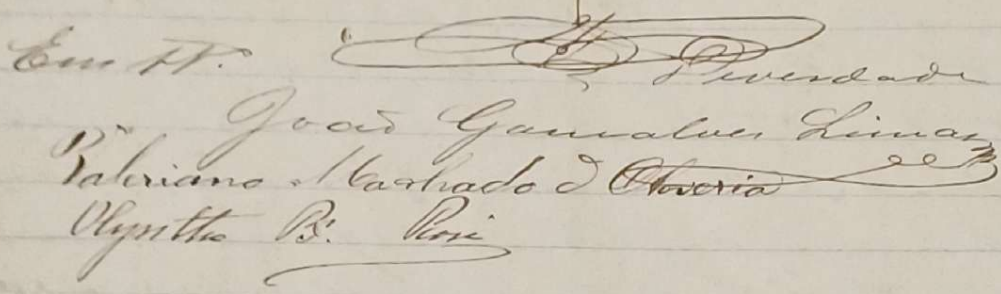 Em tt.º De verdade
João Gonsalves Lima
Valeriano Machado d Oliveria
Olyntho B. Rosi